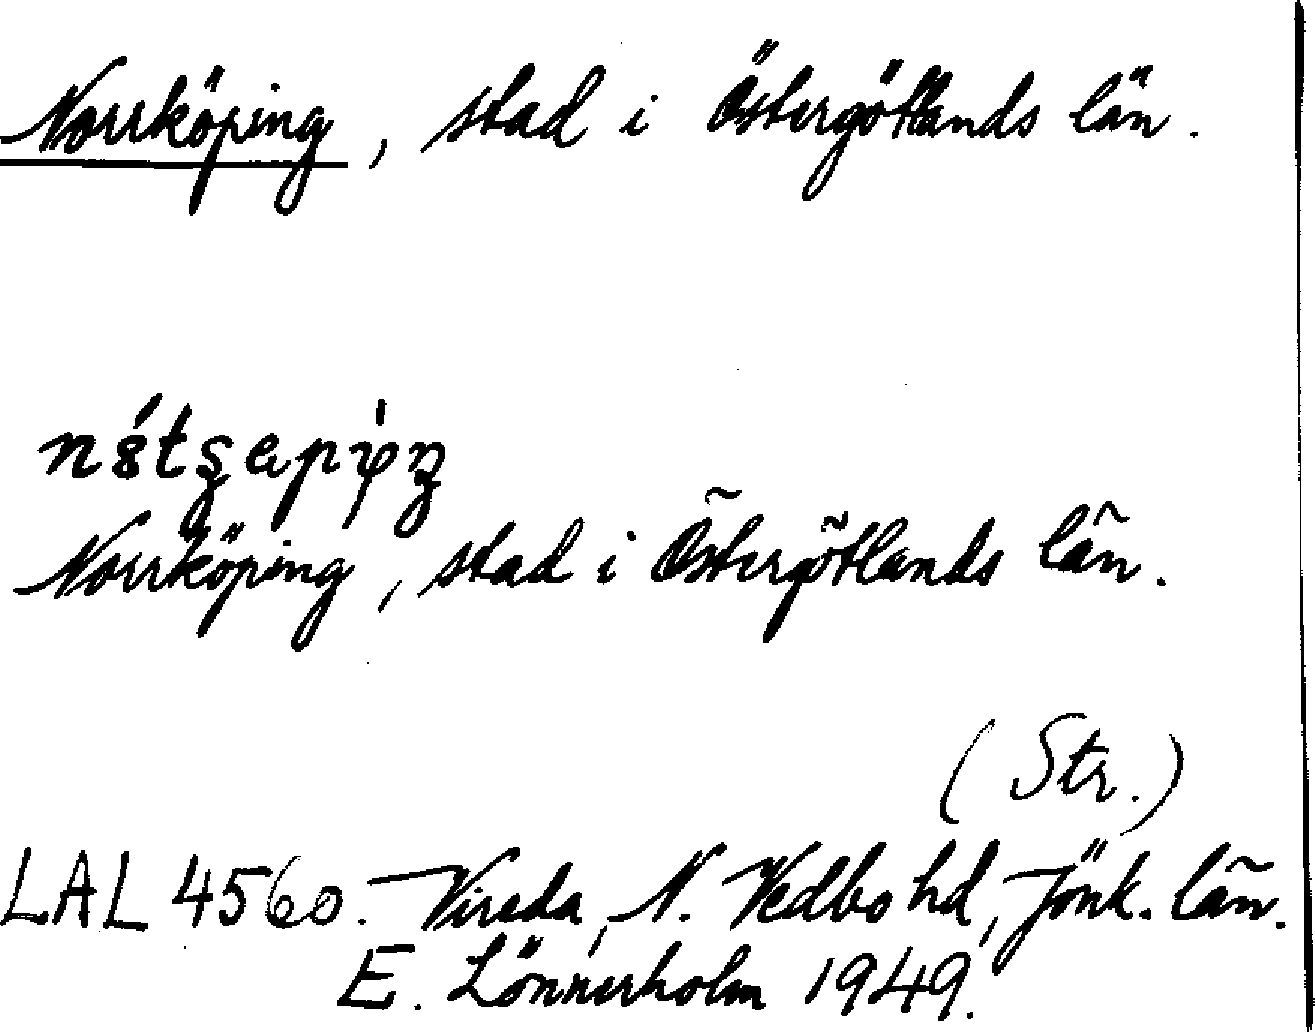 Norrköping, stad i Östergötlands län.
Norrköping, stad i Östergötlands län.
(Str.)
LAL 4560. Vireda, N. Vedbo hd, Jönk. län.
E. Lönnerholm 1949.